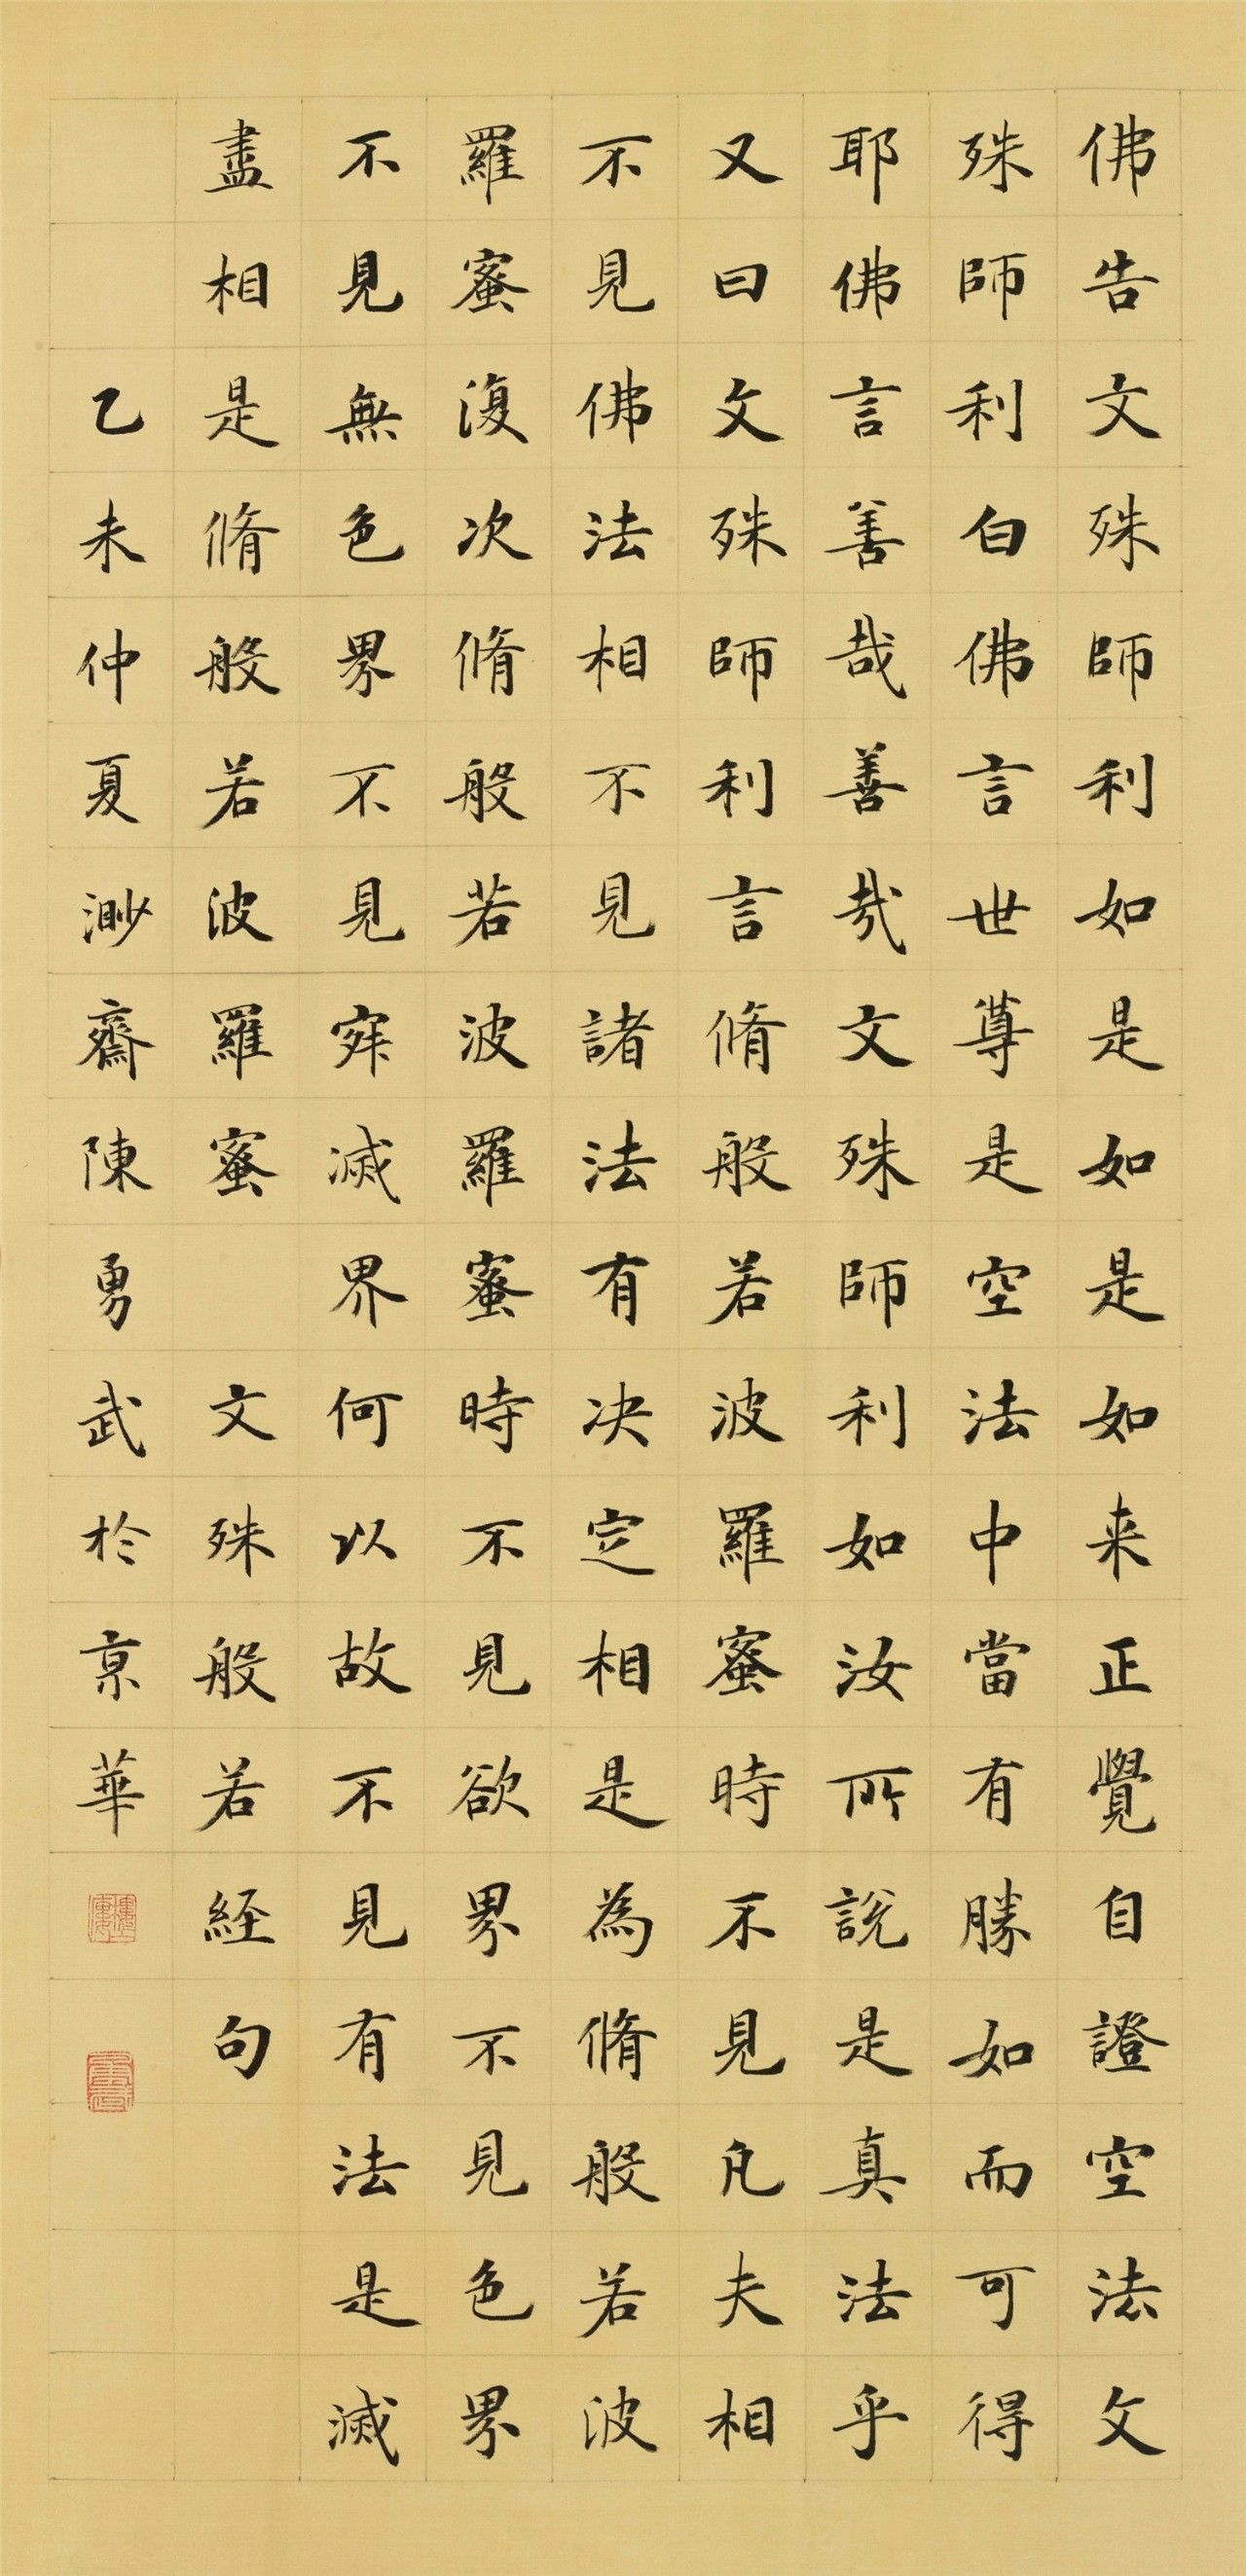 佛告文殊師利如是如是如来正覺自證空法文
殊師利白佛言世尊是空法中當有勝如而可得
耶佛言善哉善哉文殊師利如汝所說是真法乎
又曰文殊師利言脩般若波羅蜜時不見凡夫相
不見佛法相不見諸法有决定相是為脩般若波
羅蜜復次脩般若波羅蜜時不見欲界不見色界
不見無色界不見寂滅界何以故不見有法是滅
盡相是脩般若波羅蜜 文殊般若経句
乙未仲夏渺齋陳勇武於京華